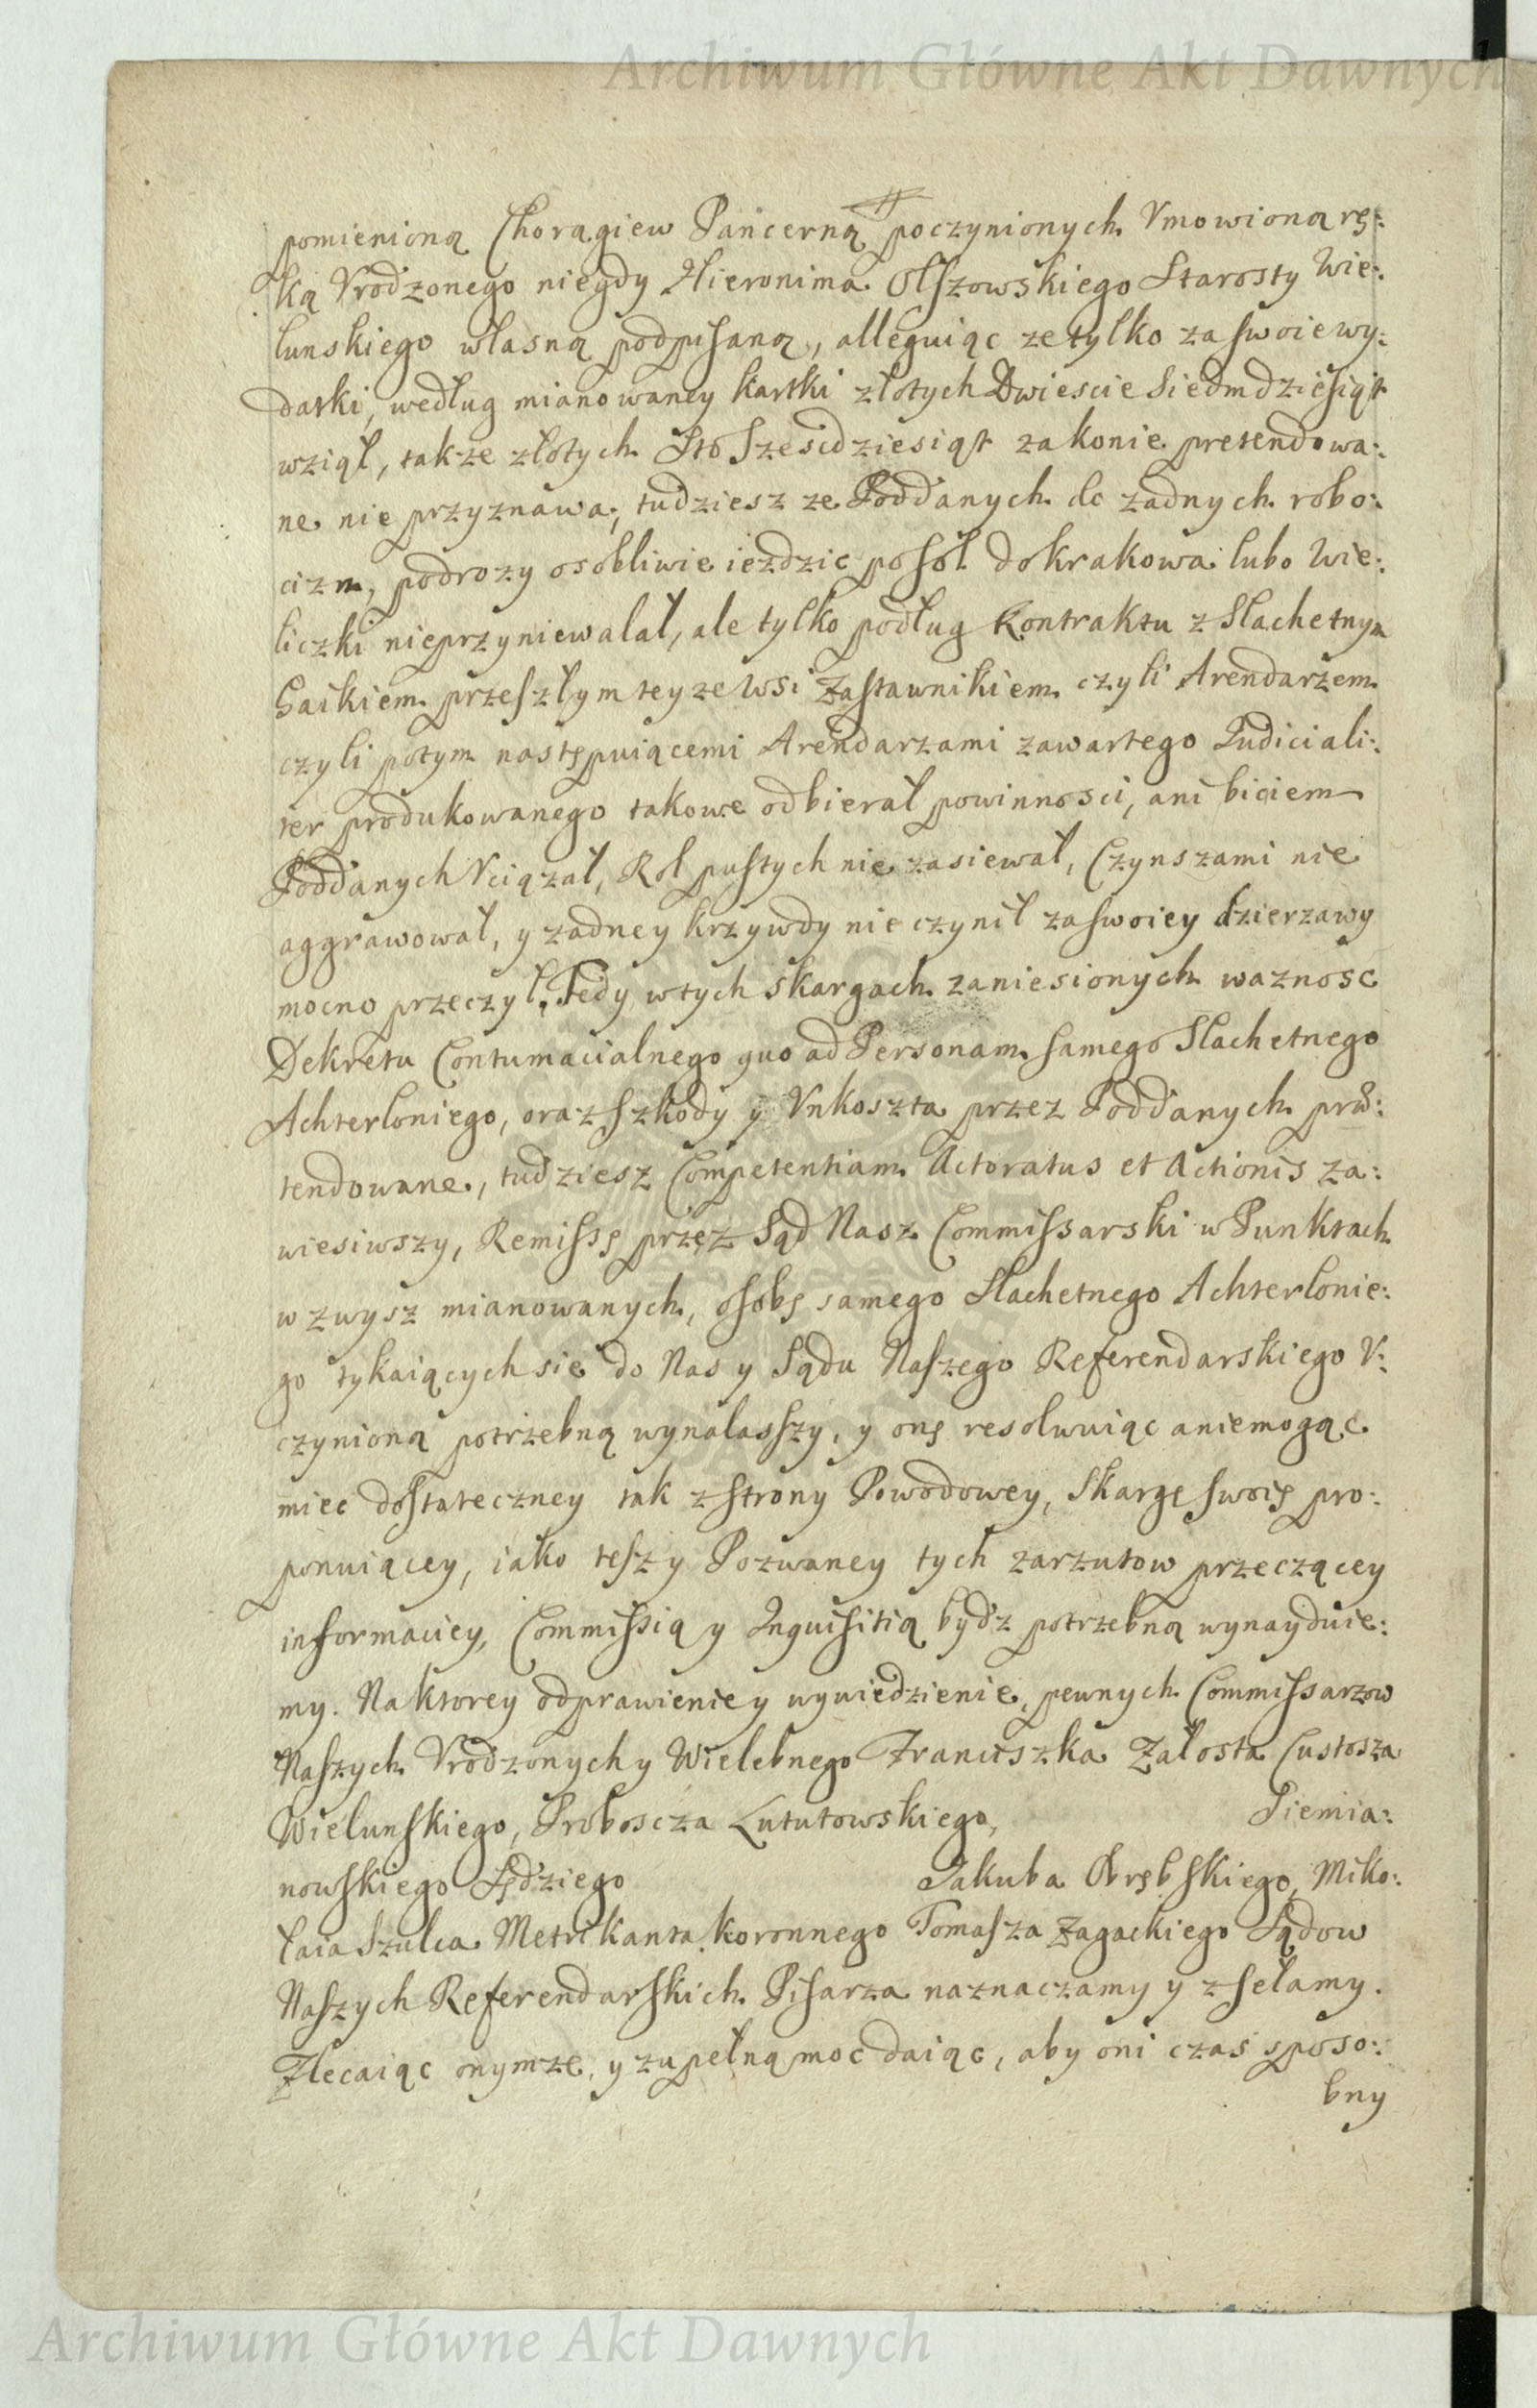 Archiwum Główne Akt Dawnych
pomienioną Chorągiew Pancerną poczynionych. Vmowioną rę:
ką Vrodzonego niegdy Hieronima Olszowskiego Starosty Wie:
lunskiego własną podpisaną, alleguiąc ze tylko za swoie wy:
datki, według mianowaney kartki złotych Dwiescie Siedmdziesiąt
wziął, takze złotych Sto Szescdziesiąt za konie pretendowa:
ne nie przyznawa, tudziesz ze Poddanych do zadnych robo:
cizn, podrozy osobliwie iezdzic po sol do krakowa lubo Wie:
liczki nieprzyniewalał, ale tylko podług Kontraktu z Slachetnym
Gaikiem przeszłym teyze Wsi Zastawnikiem czyli Arendarzem
czyli potym następuiącemi Arendarzami zawartego Iudiciali:
ter produkowanego takowe odbierał powinnosci, ani biciem
Poddanych Vciązał, Rol pustych nie zasiewał, Czynszami nie
aggrawował, y zadney krzywdy nie czynił za swoiey dzierzawy
mocno przeczył. Tedy w tych skargach zaniesionych waznosc
Dekretu Contumacialnego quo ad Personam samego Slachetnego
Achterloniego, oraz szkody y Vnkoszta przez Poddanych præ:
tendowane, tudziesz Competentiam Actoratus et Actionis za:
wiesiwszy, Remissę przez Sąd Nasz Commissarski w Punktach
w zwysz mianowanych, osobę samego Slachetnego Achterlonie:
go tykaiących sie do Nas y Sądu Naszego Referendarskiego V:
czynioną potrzebną wynalasszy, y onę resolwuiąc a niemogąc
miec dostateczney tak z strony Powodowey, Skargę swoię pro:
ponuiącey, iako tesz y Pozwaney tych zarzutow przeczącey
informaciey, Commissią y Inquisitią bydz potrzebną wynayduie:
my. Na ktorey odprawienie y wywiedzienie, pewnych Commissarzow
Naszych Vrodzonych y Wielebnego Franciszka Załosta Custosza
Wielunskiego, Proboscza Lututowskiego, Piemia:
nowskiego Sędziego Jakuba Obrębskiego, Miko:
łaia Szulca Metrikanta koronnego Tomasza Zagackiego Sądow
Naszych Referendarskich Pisarza naznaczamy y z sełamy.
Zlecaiąc onymze, y zupełną moc daiąc, aby oni czas sposo:
bny
Archiwum Główne Akt Dawnych